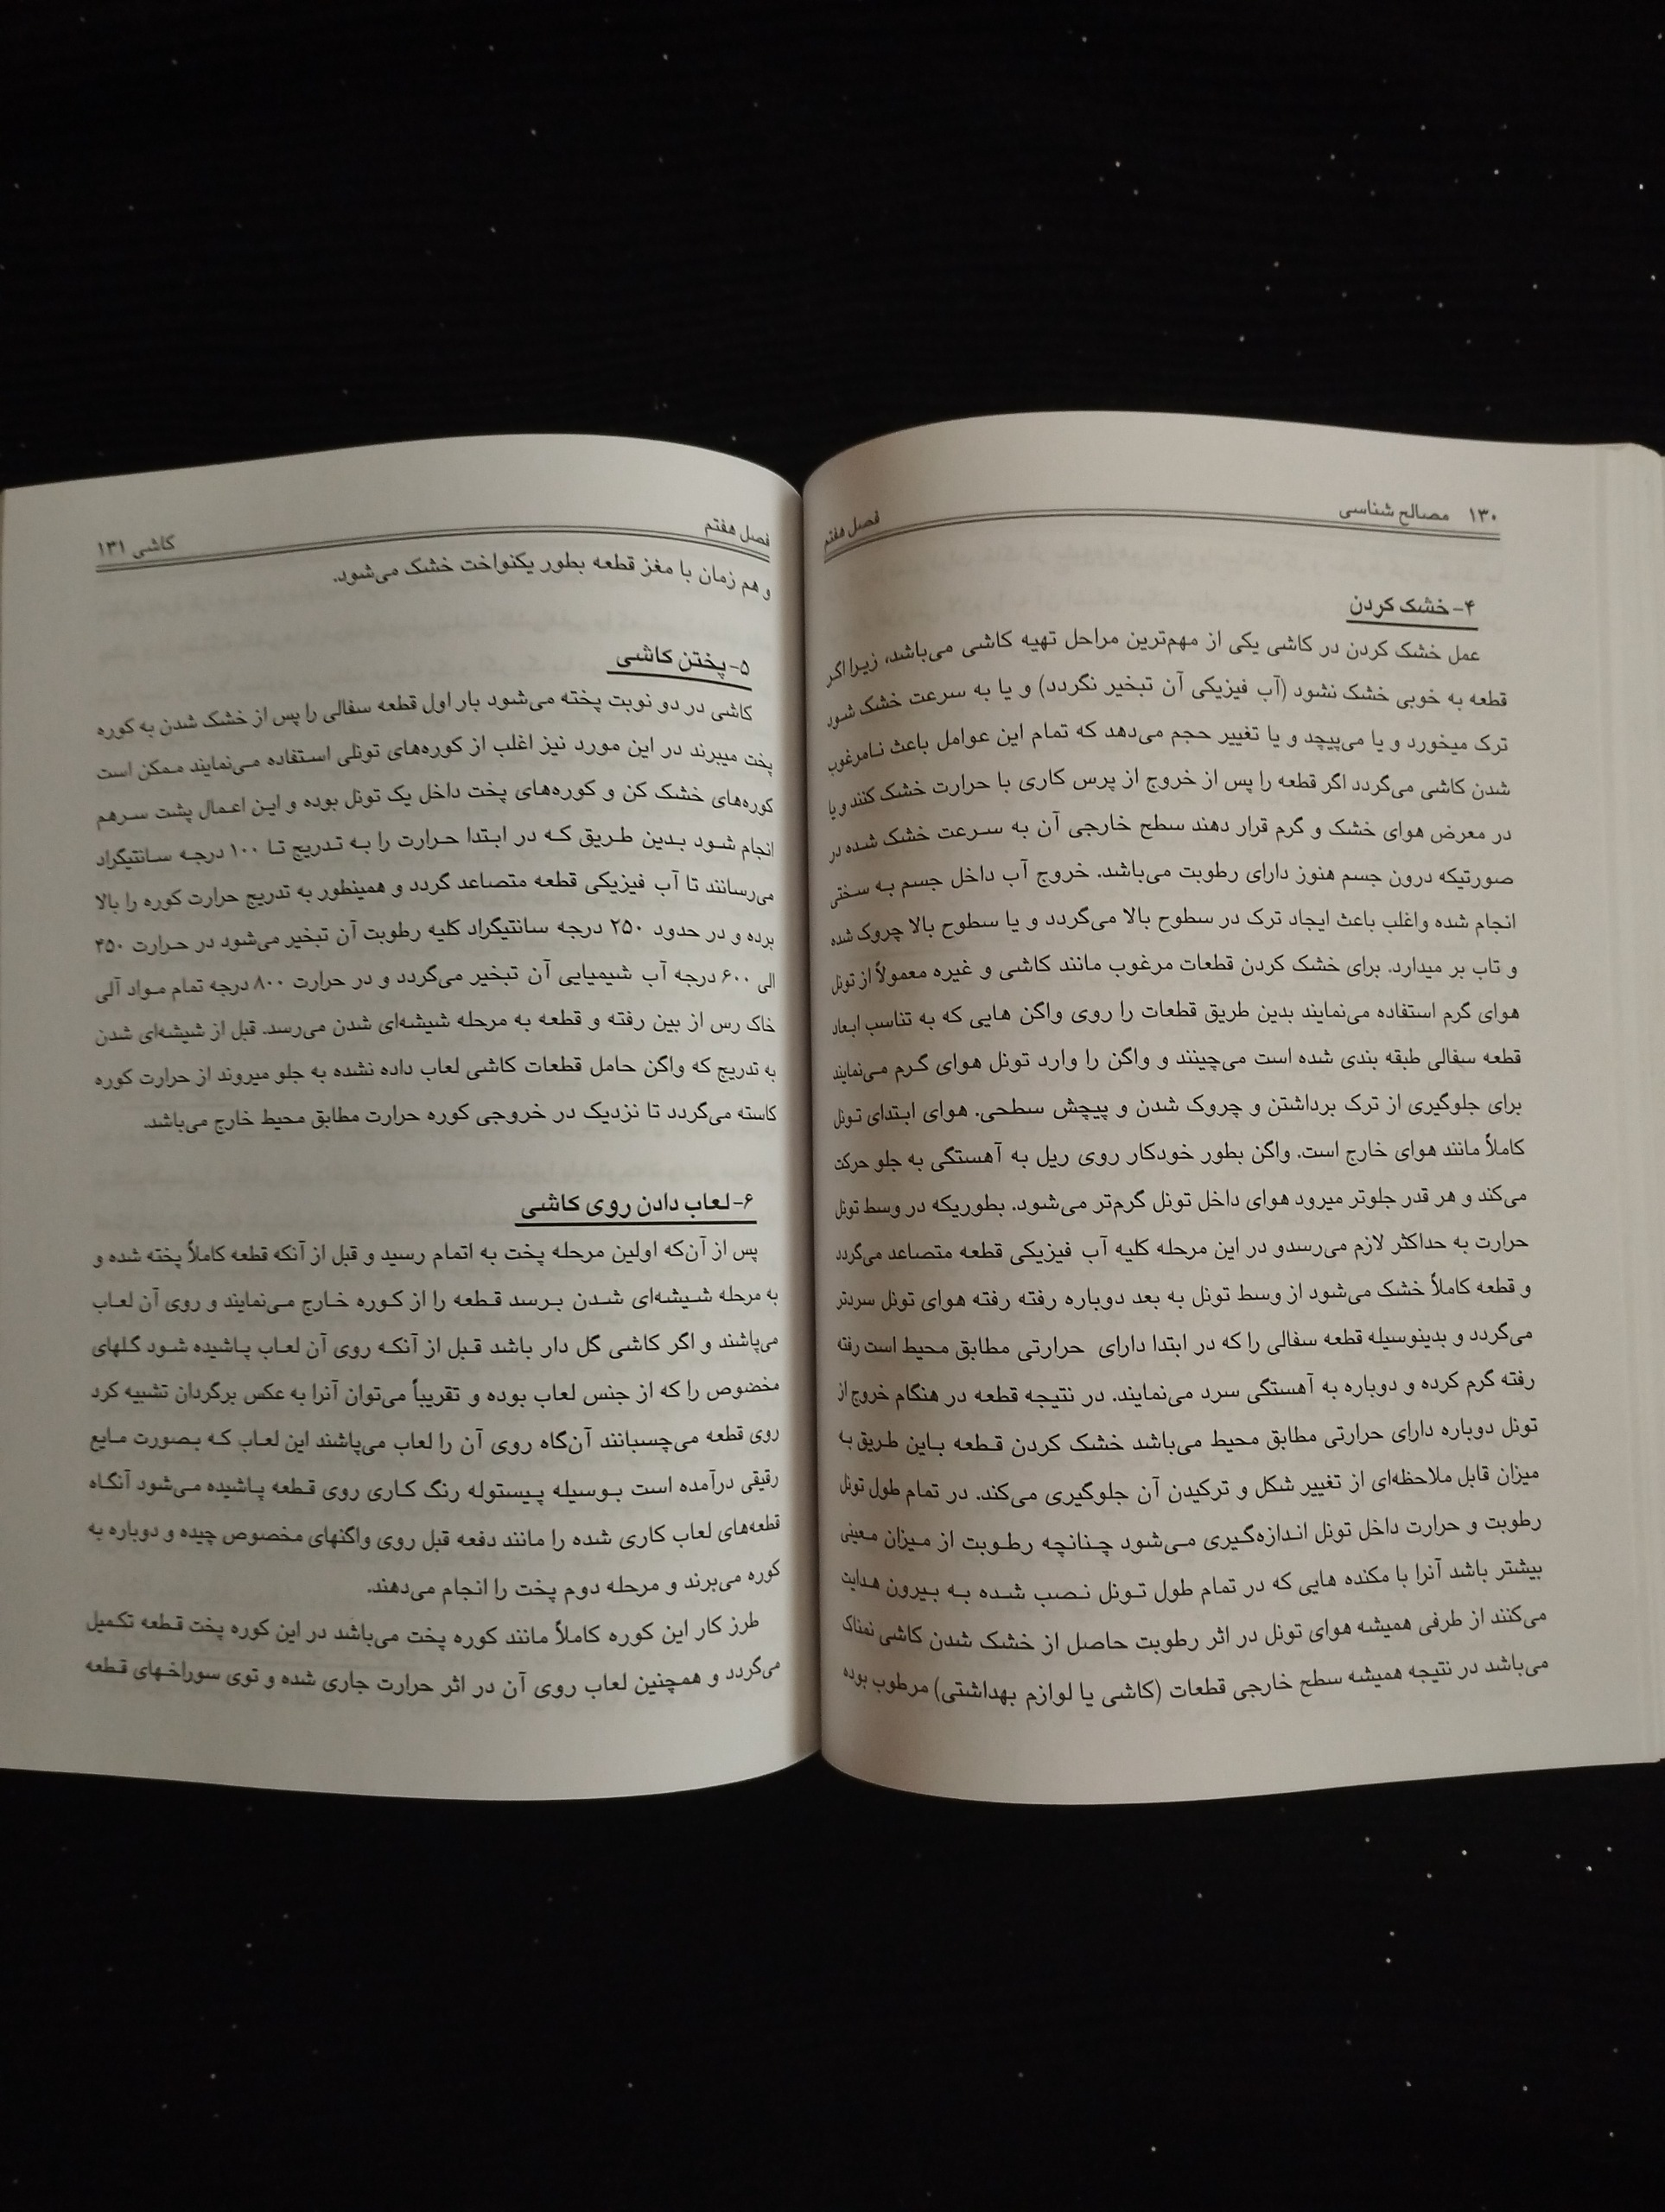 ۱۳۰ مصالح شناسی
فصل هفتم
۴- خشک کردن
عمل خشک کردن در کاشی یکی از مهم‌ترین مراحل تهیه کاشی می‌باشد، زیرا اگر
قطعه به خوبی خشک نشود (آب فیزیکی آن تبخیر نگردد) و یا به سرعت خشک شود
ترک میخورد و یا می‌پیچد و یا تغییر حجم می‌دهد که تمام این عوامل باعث نامرغوب
شدن کاشی می‌گردد اگر قطعه را پس از خروج از پرس کاری با حرارت خشک کنند و یا
در معرض هوای خشک و گرم قرار دهند سطح خارجی آن به سرعت خشک شده در
صورتیکه درون جسم هنوز دارای رطوبت می‌باشد. خروج آب داخل جسم به سختی
انجام شده واغلب باعث ایجاد ترک در سطوح بالا می‌گردد و یا سطوح بالا چروک شده
و تاب بر میدارد. برای خشک کردن قطعات مرغوب مانند کاشی و غیره معمولاً از تونل
هوای گرم استفاده می‌نمایند بدین طریق قطعات را روی واگن هایی که به تناسب ابعاد
قطعه سفالی طبقه بندی شده است می‌چینند و واگن را وارد تونل هوای گرم می‌نمایند
برای جلوگیری از ترک برداشتن و چروک شدن و پیچش سطحی. هوای ابتدای تونل
کاملاً مانند هوای خارج است. واگن بطور خودکار روی ریل به آهستگی به جلو حرکت
می‌کند و هر قدر جلوتر میرود هوای داخل تونل گرم‌تر می‌شود. بطوریکه در وسط تونل
حرارت به حداکثر لازم می‌رسدو در این مرحله کلیه آب فیزیکی قطعه متصاعد می‌گردد
و قطعه کاملاً خشک می‌شود از وسط تونل به بعد دوباره رفته رفته هوای تونل سردتر
می‌گردد و بدینوسیله قطعه سفالی را که در ابتدا دارای حرارتی مطابق محیط است رفته
رفته گرم کرده و دوباره به آهستگی سرد می‌نمایند. در نتیجه قطعه در هنگام خروج از
تونل دوباره دارای حرارتی مطابق محیط می‌باشد خشک کردن قطعه باین طریق به
میزان قابل ملاحظه‌ای از تغییر شکل و ترکیدن آن جلوگیری می‌کند. در تمام طول تونل
رطوبت و حرارت داخل تونل اندازه‌گیری می‌شود چنانچه رطوبت از میزان معینی
بیشتر باشد آنرا با مکنده هایی که در تمام طول تونل نصب شده به بیرون هدایت
می‌کنند از طرفی همیشه هوای تونل در اثر رطوبت حاصل از خشک شدن کاشی نمناک
می‌باشد در نتیجه همیشه سطح خارجی قطعات (کاشی یا لوازم بهداشتی) مرطوب بوده
فصل هفتم
کاشی ۱۳۱
و هم زمان با مغز قطعه بطور یکنواخت خشک می‌شود.
۵- پختن کاشی
کاشی در دو نوبت پخته می‌شود بار اول قطعه سفالی را پس از خشک شدن به کوره
پخت میبرند در این مورد نیز اغلب از کوره‌های تونلی استفاده می‌نمایند ممکن است
کوره‌های خشک کن و کوره‌های پخت داخل یک تونل بوده و این اعمال پشت سرهم
انجام شود بدین طریق که در ابتدا حرارت را به تدریج تا ۱۰۰ درجه سانتیگراد
می‌رسانند تا آب فیزیکی قطعه متصاعد گردد و همینطور به تدریج حرارت کوره را بالا
برده و در حدود ۲۵۰ درجه سانتیگراد کلیه رطوبت آن تبخیر می‌شود در حرارت ۴۵۰
الی ۶۰۰ درجه آب شیمیایی آن تبخیر می‌گردد و در حرارت ۸۰۰ درجه تمام مواد آلی
خاک رس از بین رفته و قطعه به مرحله شیشه‌ای شدن می‌رسد. قبل از شیشه‌ای شدن
به تدریج که واگن حامل قطعات کاشی لعاب داده نشده به جلو میروند از حرارت کوره
کاسته می‌گردد تا نزدیک در خروجی کوره حرارت مطابق محیط خارج می‌باشد.
۶- لعاب دادن روی کاشی
پس از آن‌که اولین مرحله پخت به اتمام رسید و قبل از آنکه قطعه کاملاً پخته شده و
به مرحله شیشه‌ای شدن برسد قطعه را از کوره خارج می‌نمایند و روی آن لعاب
می‌پاشند و اگر کاشی گل دار باشد قبل از آنکه روی آن لعاب پاشیده شود گلهای
مخصوص را که از جنس لعاب بوده و تقریباً می‌توان آنرا به عکس برگردان تشبیه کرد
روی قطعه می‌چسبانند آن‌گاه روی آن را لعاب می‌پاشند این لعاب که بصورت مایع
رقیقی درآمده است بوسیله پیستوله رنگ کاری روی قطعه پاشیده می‌شود آنگاه
قطعه‌های لعاب کاری شده را مانند دفعه قبل روی واگنهای مخصوص چیده و دوباره به
کوره می‌برند و مرحله دوم پخت را انجام می‌دهند.
طرز کار این کوره کاملاً مانند کوره پخت می‌باشد در این کوره پخت قطعه تکمیل
می‌گردد و همچنین لعاب روی آن در اثر حرارت جاری شده و توی سوراخهای قطعه